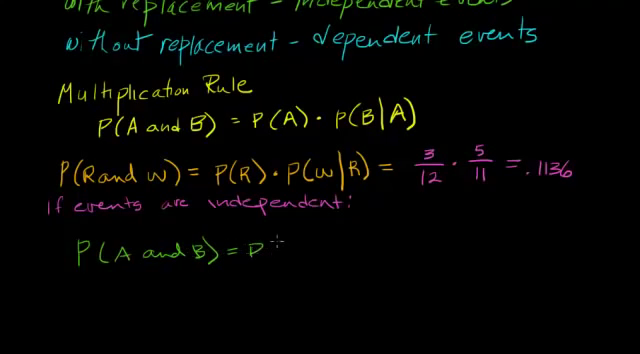 with replacement - independent events
without replacement - dependent events
Multiplication Rule
P(A and B) = P(A) · P(B|A)
P(R and W) = P(R) · P(W|R) = 3/12 · 5/11 = .1136
If events are independent:
P(A and B) = P